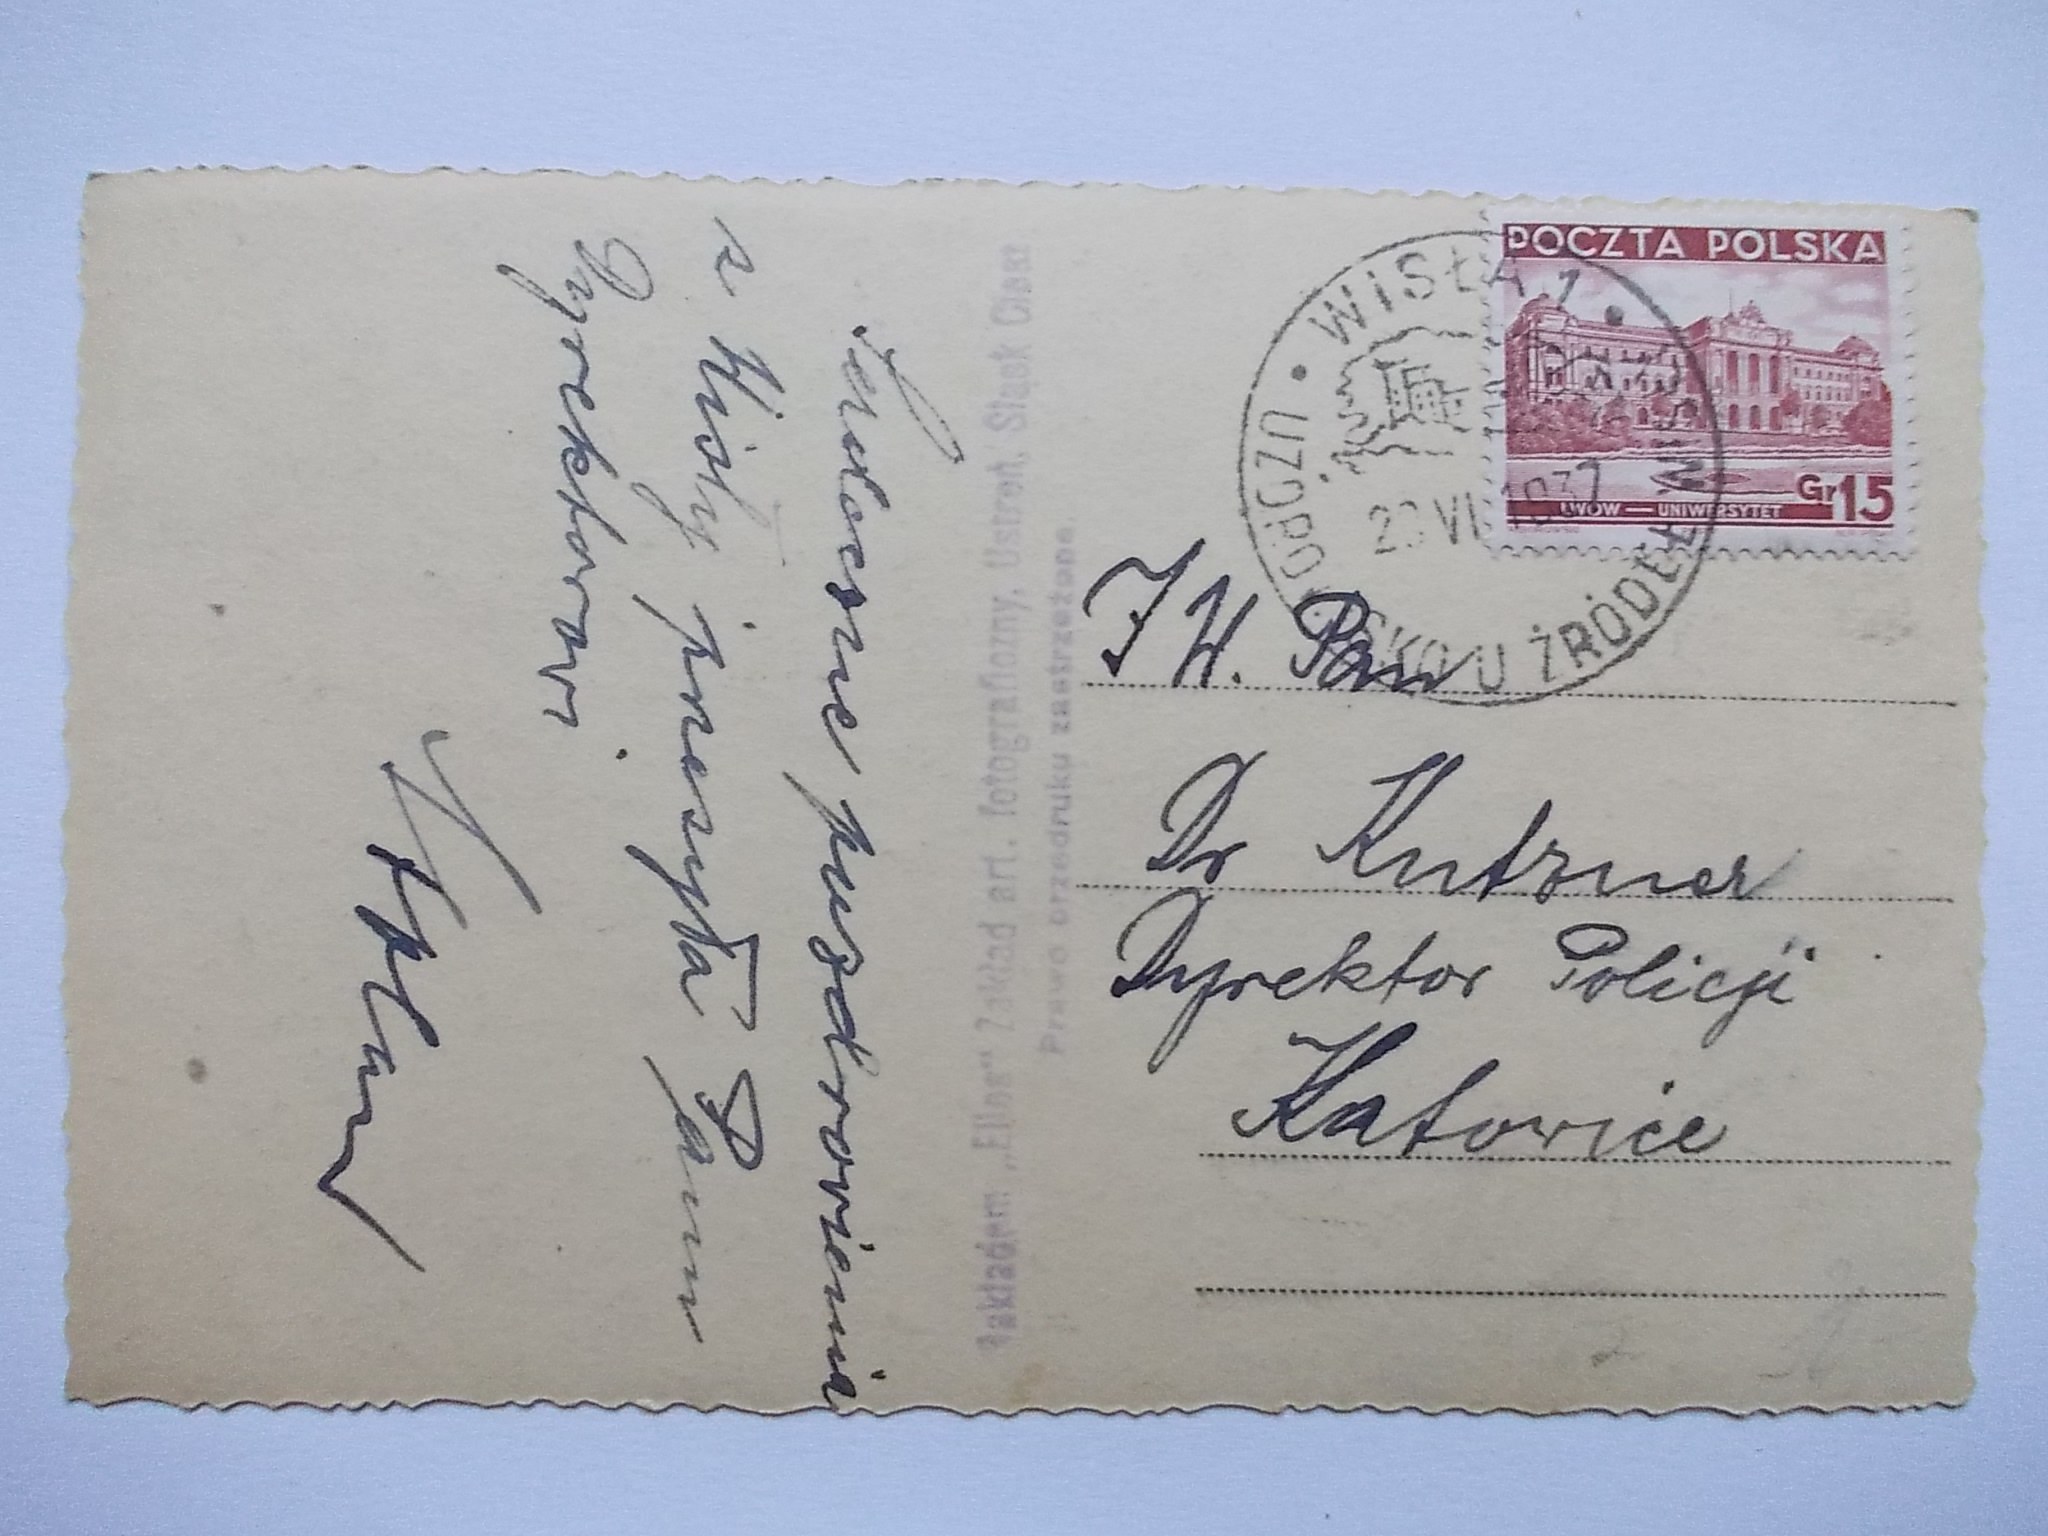 Serdeczne pozdrowienia
z Wisły przesyła Panu
Dyrektorowi
Nakładem „Elios“ Zakład art. fotograficzny, Ustroń, Śląsk Ciesz
Prawo przedruku zastrzeżone.
POCZTA POLSKA
Gr 15
LWÓW — UNIWERSYTET
WISŁA 1
UZDROWISKO U ŹRÓDEŁ WISŁY
VI 1937
J W. Pan
Dr Kutzner
Dyrektor Policji
Katowice